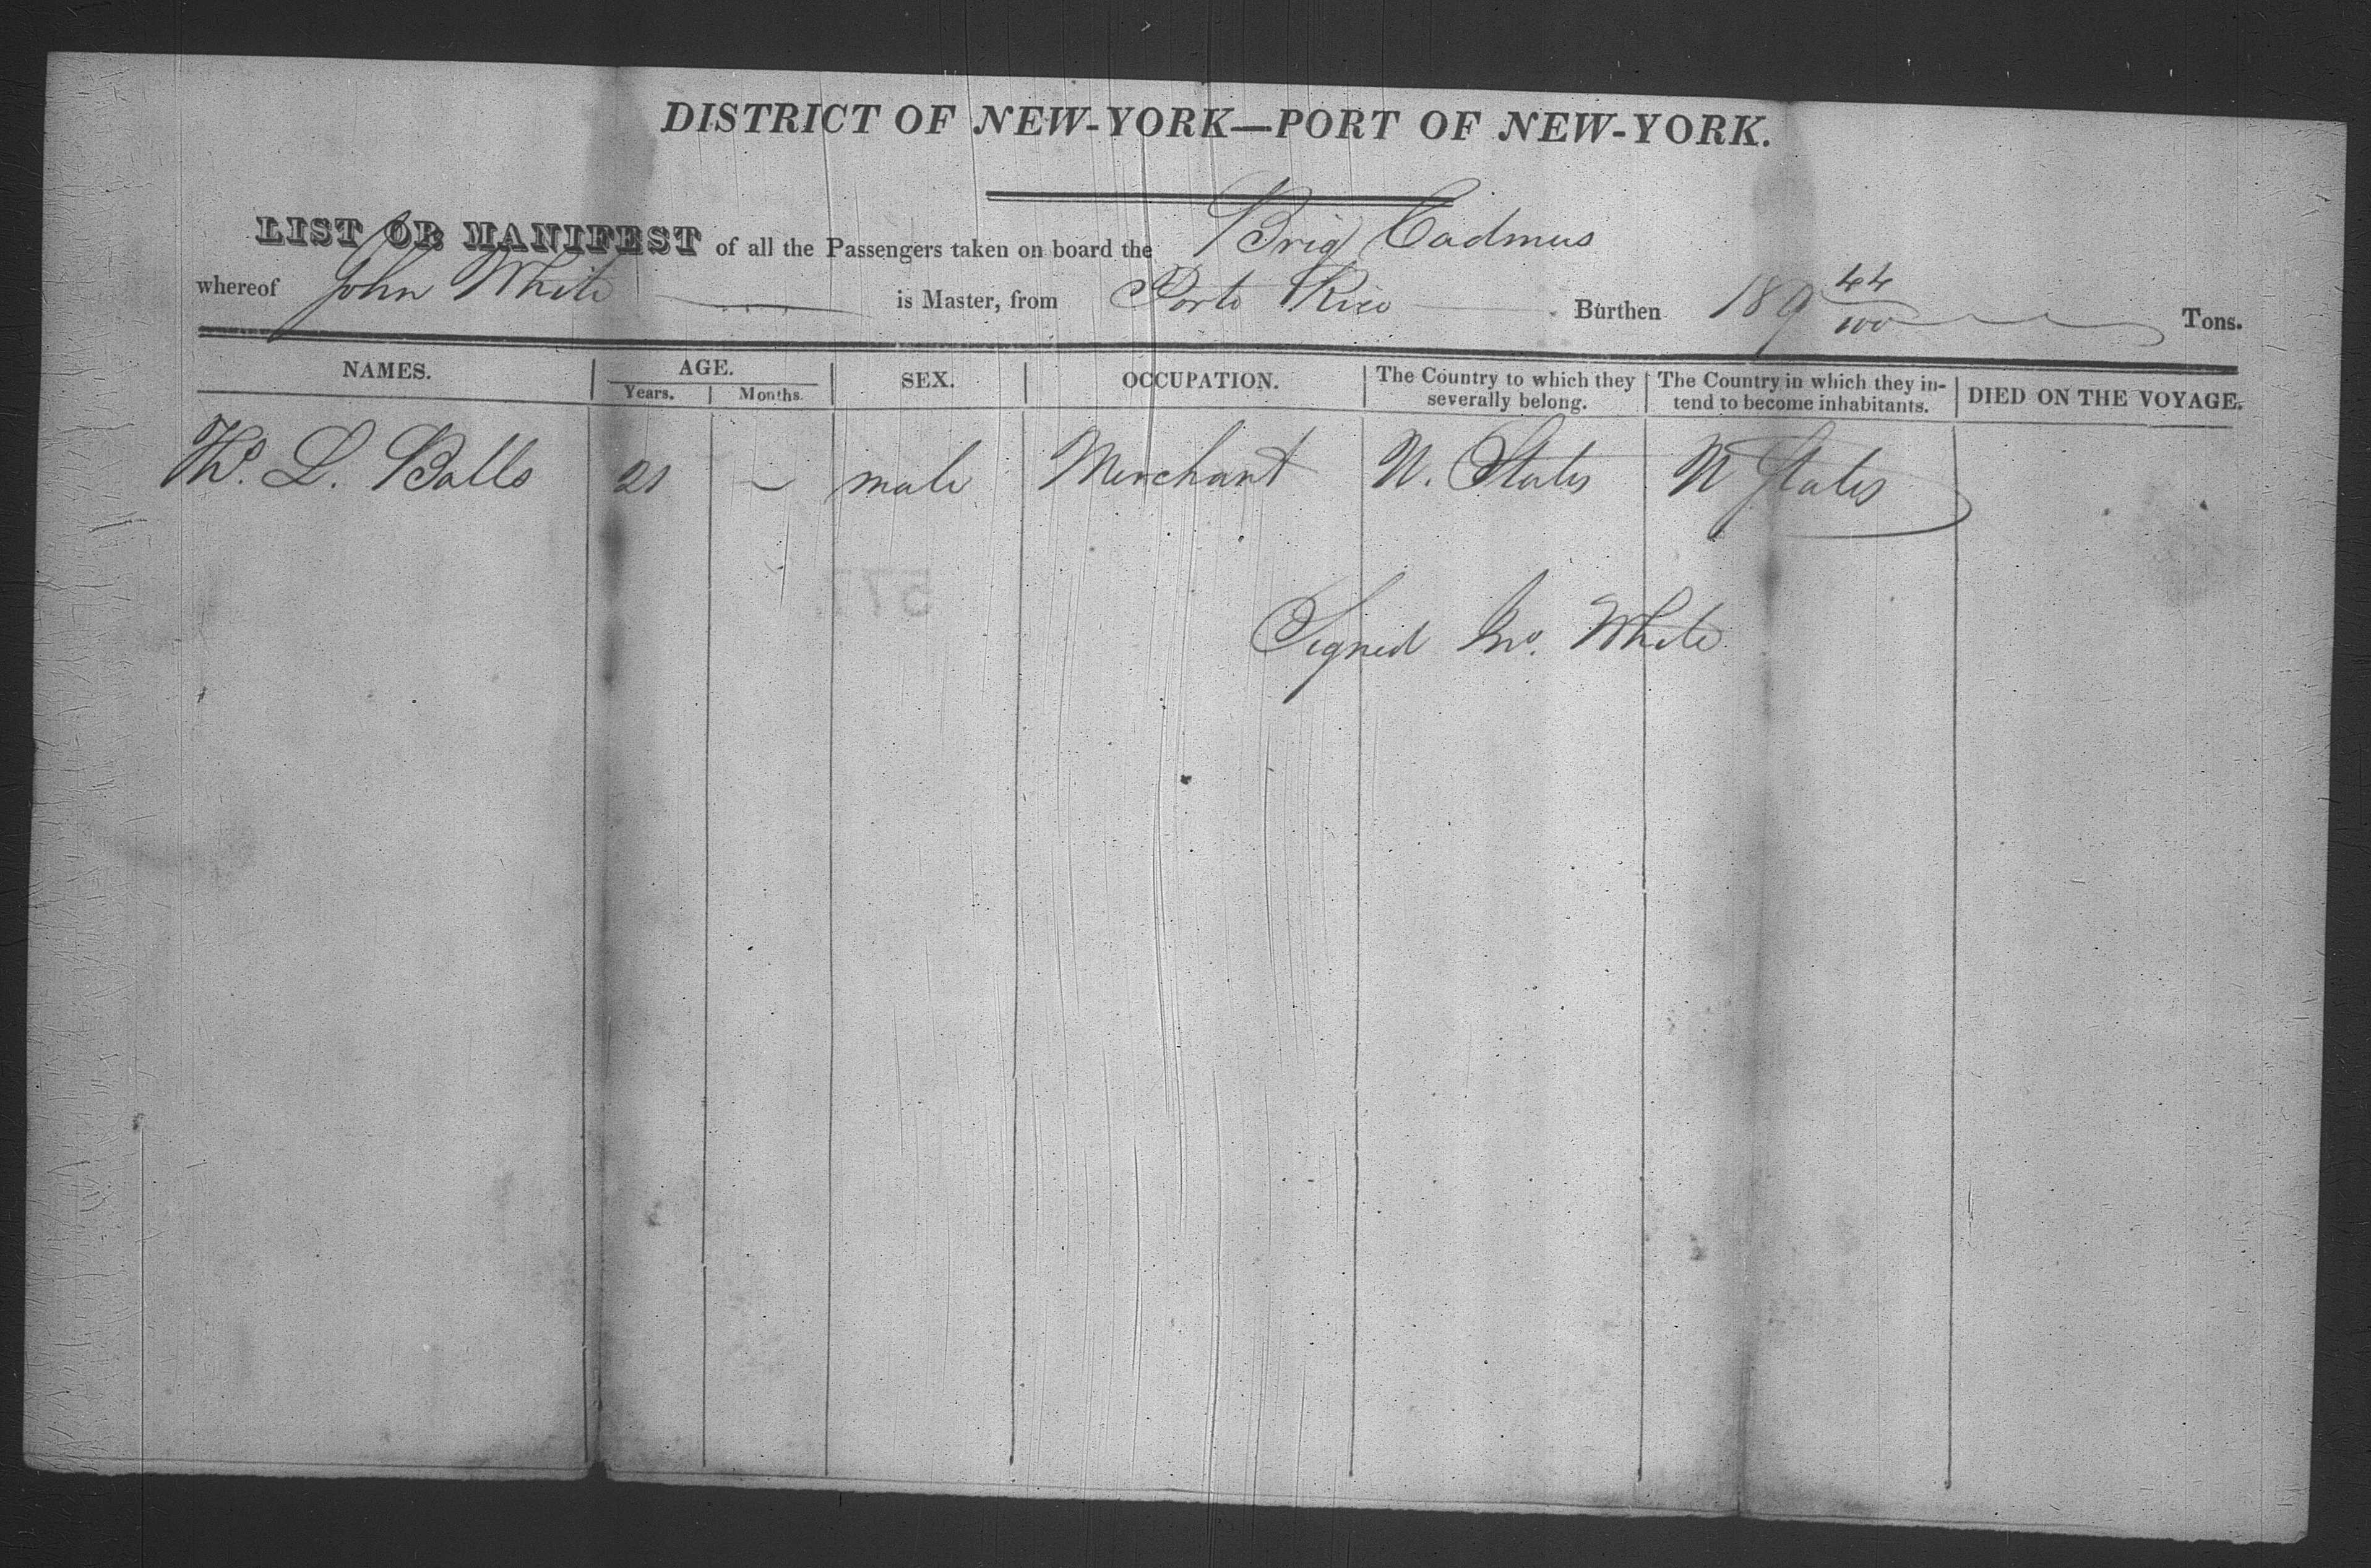 DISTRICT OF NEW-YORK—PORT OF NEW-YORK.
LIST OR MANIFEST of all the Passengers taken on board the Brig Cadmus
whereof John White is Master, from Porto Rico Burthen 189 44/100 Tons.
NAMES. AGE. SEX. OCCUPATION. The Country to which they severally belong. The Country in which they intend to become inhabitants. DIED ON THE VOYAGE.
Years. Months.
Tho. L. Balls 21 – male Merchant U. States U States
Signed Jno. White